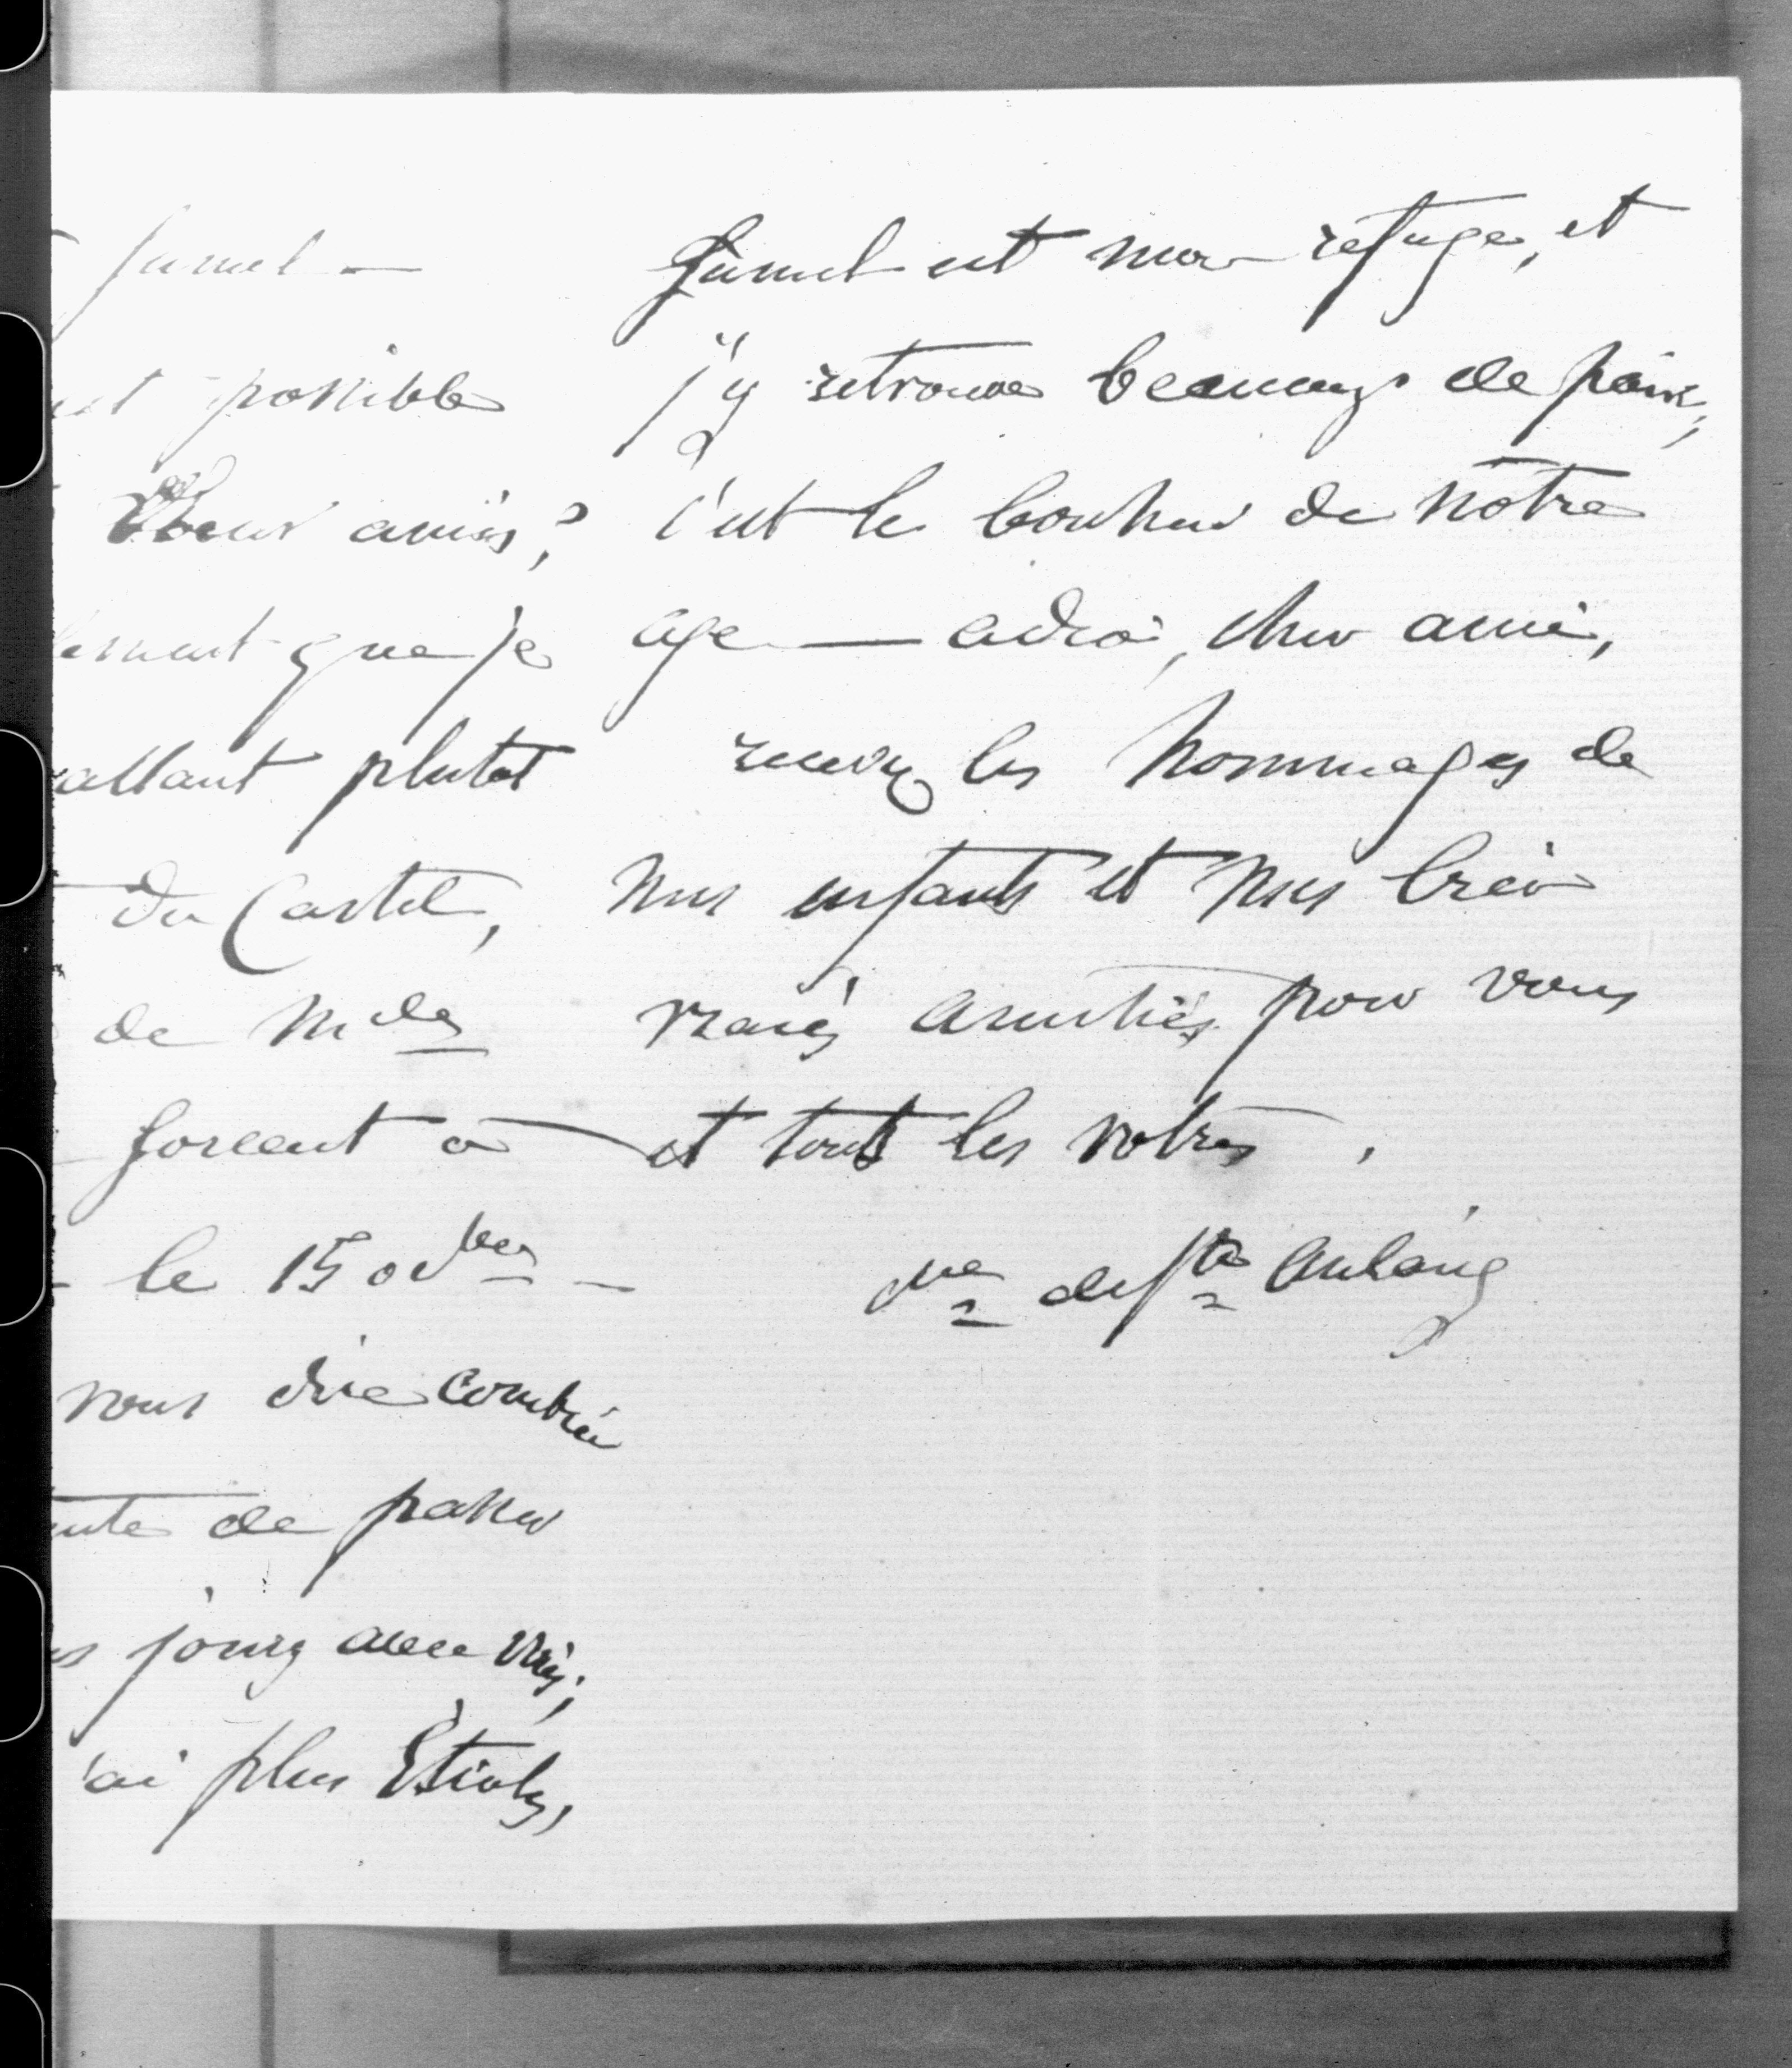 fumel —
est possible
bons amis ?
que je
allant plutot
du Castel,
de Mdes
forcent à
le 15 8bre —
vous dire combien
de passer
jours avec vous,
'ai plus Étioles,
fumel est mon refuge, et
j'y retrouve beaucoup de paix,
c'est le bonheur de notre
age — adieu, cher ami,
recevez les hommages de
mes enfants et mes bien
vraies amitiés pour vous
et tous les votres .
de Ste Aulaire